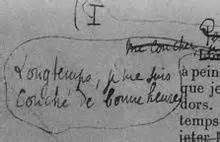 I
me coucher,
Longtemps, je me suis
Couché de bonne heure
à pein
que je
dors.
temps
jeter l